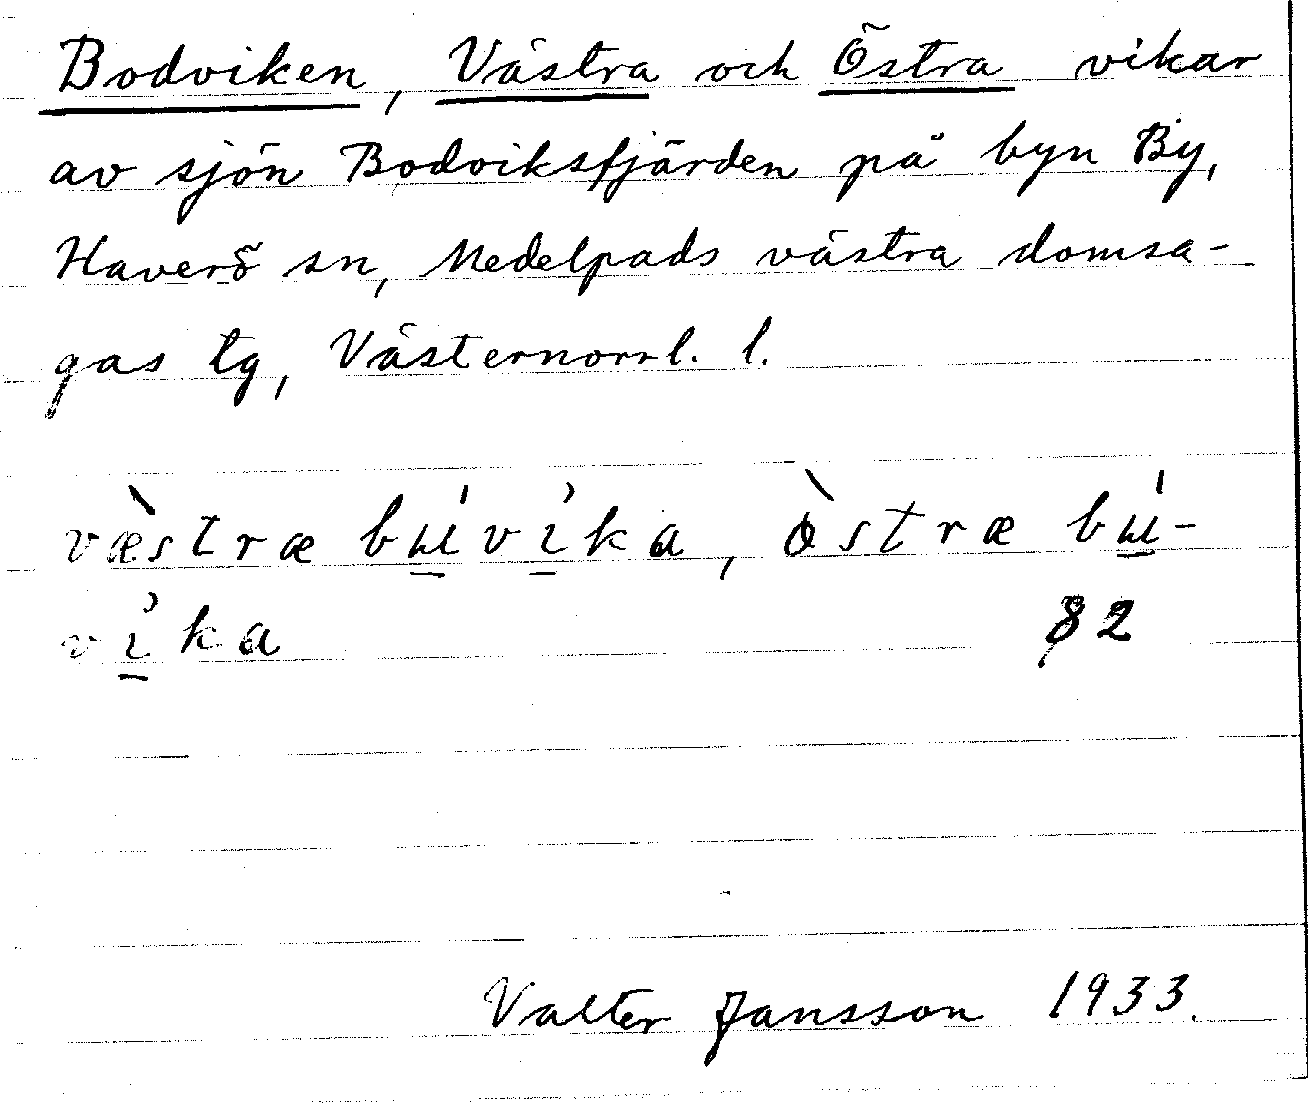 Bodviken, Västra och Östra vikar
av sjön Bodviksfjärden på byn By,
Haverö sn, Medelpads västra domsa-
gas tg, Västernorrl. l.
væ̀stræ bú̲vỉ̲ka, òstræ bú̲-
vỉ̲ka 82
Valter Jansson 1933.